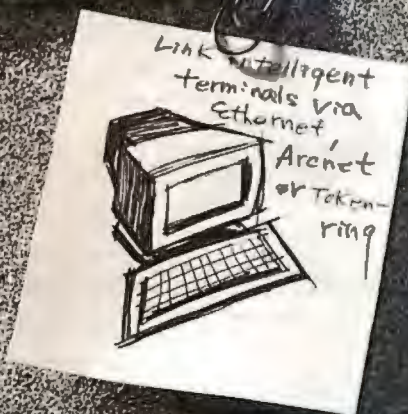 Link intelligent
terminals via
Ethernet,
Arcnet
or Token-
ring